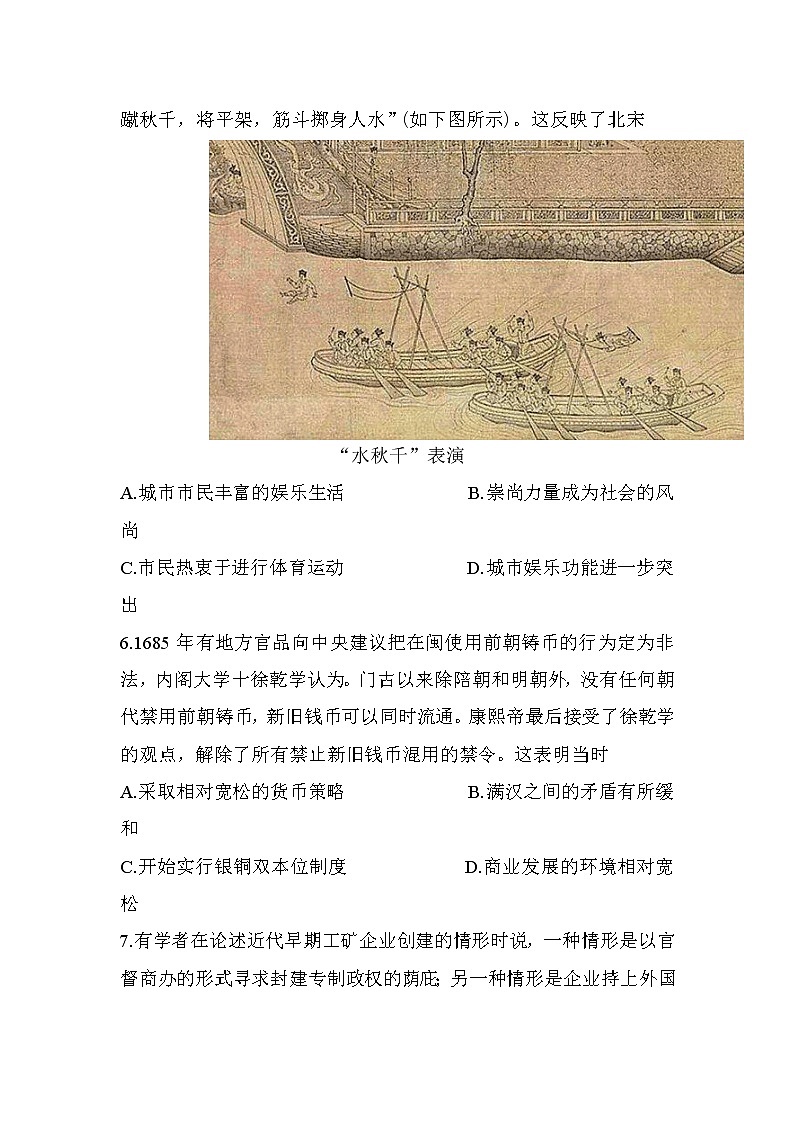 蹴秋千，将平架，筋斗掷身人水”(如下图所示)。这反映了北宋
“水秋千”表演
A.城市市民丰富的娱乐生活 B.崇尚力量成为社会的风
尚
C.市民热衷于进行体育运动 D.城市娱乐功能进一步突
出
6.1685 年有地方官员向中央建议把在闽使用前朝铸币的行为定为非
法，内阁大学十徐乾学认为。门古以来除陪朝和明朝外，没有任何朝
代禁用前朝铸币，新旧钱币可以同时流通。康熙帝最后接受了徐乾学
的观点，解除了所有禁止新旧钱币混用的禁令。这表明当时
A.采取相对宽松的货币策略 B.满汉之间的矛盾有所缓
和
C.开始实行银铜双本位制度 D.商业发展的环境相对宽
松
7.有学者在论述近代早期工矿企业创建的情形时说，一种情形是以官
督商办的形式寻求封建专制政权的荫庇；另一种情形是企业持上外国